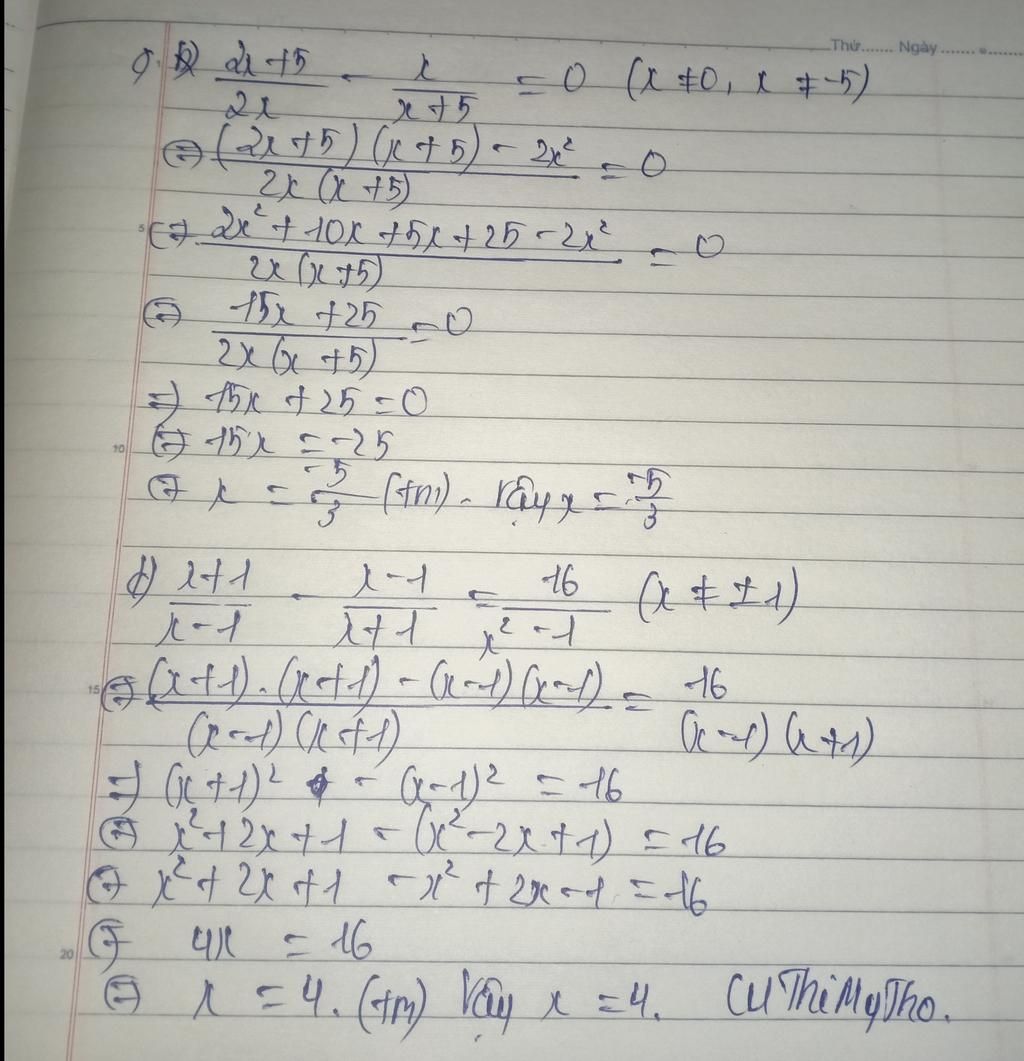 Thứ....... Ngày ....... .......
(2x+5)/(2x) - x/(x+5) = 0 (x ≠ 0, x ≠ -5)
⇔ ((2x+5)(x+5) - 2x²)/(2x(x+5)) = 0
5 ⇔ (2x² + 10x + 5x + 25 - 2x²)/(2x(x+5)) = 0
⇔ (15x + 25)/(2x(x+5)) = 0
⇒ 15x + 25 = 0
10 ⇔ 15x = -25
⇔ x = -5/3 (tm). Vậy x = -5/3
(x+1)/(x-1) - (x-1)/(x+1) = 16/(x²-1) (x ≠ ±1)
15 ⇔ ((x+1).(x+1) - (x-1)(x-1))/((x-1)(x+1)) = 16/((x-1)(x+1))
⇒ (x+1)² - (x-1)² = 16
⇔ x² + 2x + 1 - (x² - 2x + 1) = 16
⇔ x² + 2x + 1 - x² + 2x - 1 = 16
20 ⇔ 4x = 16
⇔ x = 4. (tm) Vậy x = 4. CuThiMyTho.